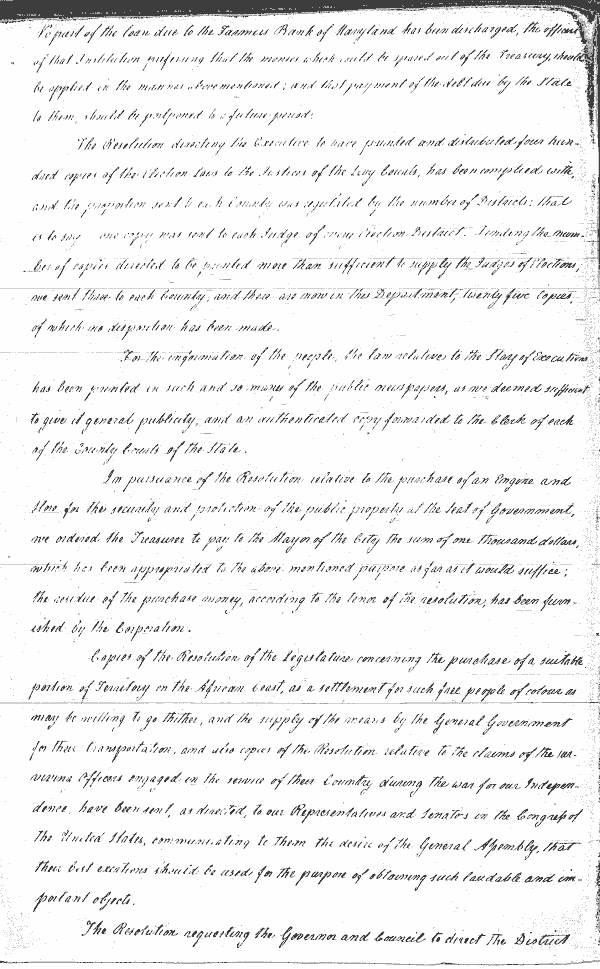 No part of the loan due to the Farmers Bank of Maryland has been discharged, the officers
of that Institution preferring that the monies which could be spared out of the Treasury, should
be applied in the manner abovementioned; and that payment of the debt due by the State
to them, should be postponed to a future period.
The Resolution directing the Executive to have printed and distributed four hun-
dred copies of the Election Laws to the Justices of the Levy Courts, has been complied with,
and the proportion sent to each County was regulated by the number of Districts: that
is to say one copy was sent to each Judge of every Election District. Finding the num-
ber of copies directed to be printed more than sufficient to supply the Judges of Elections,
we sent three to each County, and there are now in this Department, twenty five Copies,
of which no disposition has been made.
For the information of the people, the law relative to the Stay of Executions
has been printed in such and so many of the public newspapers, as we deemed sufficient
to give it general publicity, and an authenticated copy forwarded to the Clerk of each
of the County Courts of the State.
In pursuance of the Resolution relative to the purchase of an Engine and
Hose for the security and protection of the public property at the Seat of Government,
we ordered the Treasurer to pay to the Mayor of the City the sum of one thousand dollars,
which has been appropriated to the above mentioned purpose as far as it would suffice;
the residue of the purchase money, according to the tenor of the resolution, has been furn-
ished by the Corporation.
Copies of the Resolution of the Legislature concerning the purchase of a suitable
portion of Territory on the African Coast, as a settlement for such free people of colour as
may be willing to go thither, and the supply of the means by the General Government
for their transportation, and also copies of the Resolution relative to the claims of the sur-
viving Officers engaged in the service of their Country during the war for our Indepen-
dence, have been sent, as directed, to our Representatives and Senators in the Congress of
the United States, communicating to them the desire of the General Assembly, that
their best exertions should be used for the purpose of obtaining such laudable and im-
portant objects.
The Resolution requesting the Governor and Council to direct the District